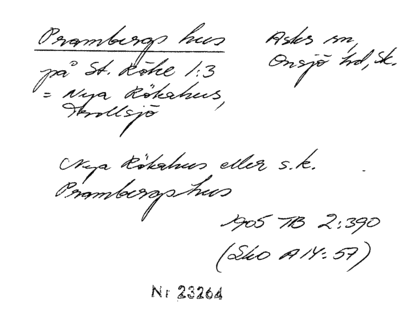 Prambergs hus
Asks sn,
Onsjö hd, Sk.
på St. Röke 1:3
= Nya Rökahus,
Trollsjö
Nya Rökahus eller s.k.
Prambergshus
1905 TB 2:390
(Sko A14:57)
Nr 23264